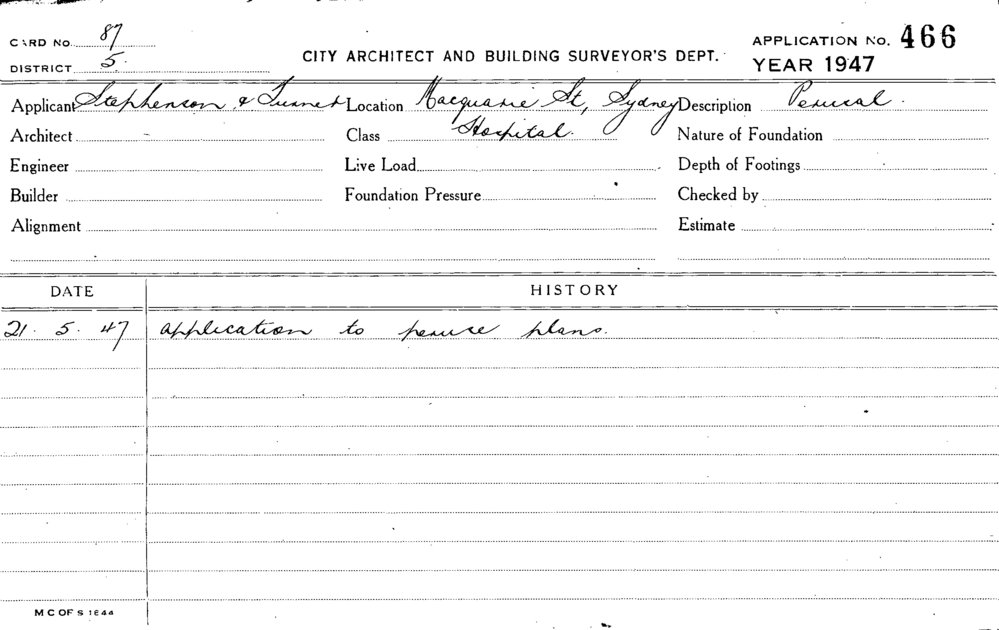 CARD NO. 87
DISTRICT 5.
CITY ARCHITECT AND BUILDING SURVEYOR'S DEPT.
APPLICATION NO. 466
YEAR 1947
Applicant Stephenson & Turner Location Macquarie St, Sydney Description Perusal.
Architect - Class Hospital. Nature of Foundation
Engineer Live Load Depth of Footings
Builder Foundation Pressure Checked by
Alignment Estimate
DATE HISTORY
21. 5. 47 application to peruse plans.
M C OF S 1844